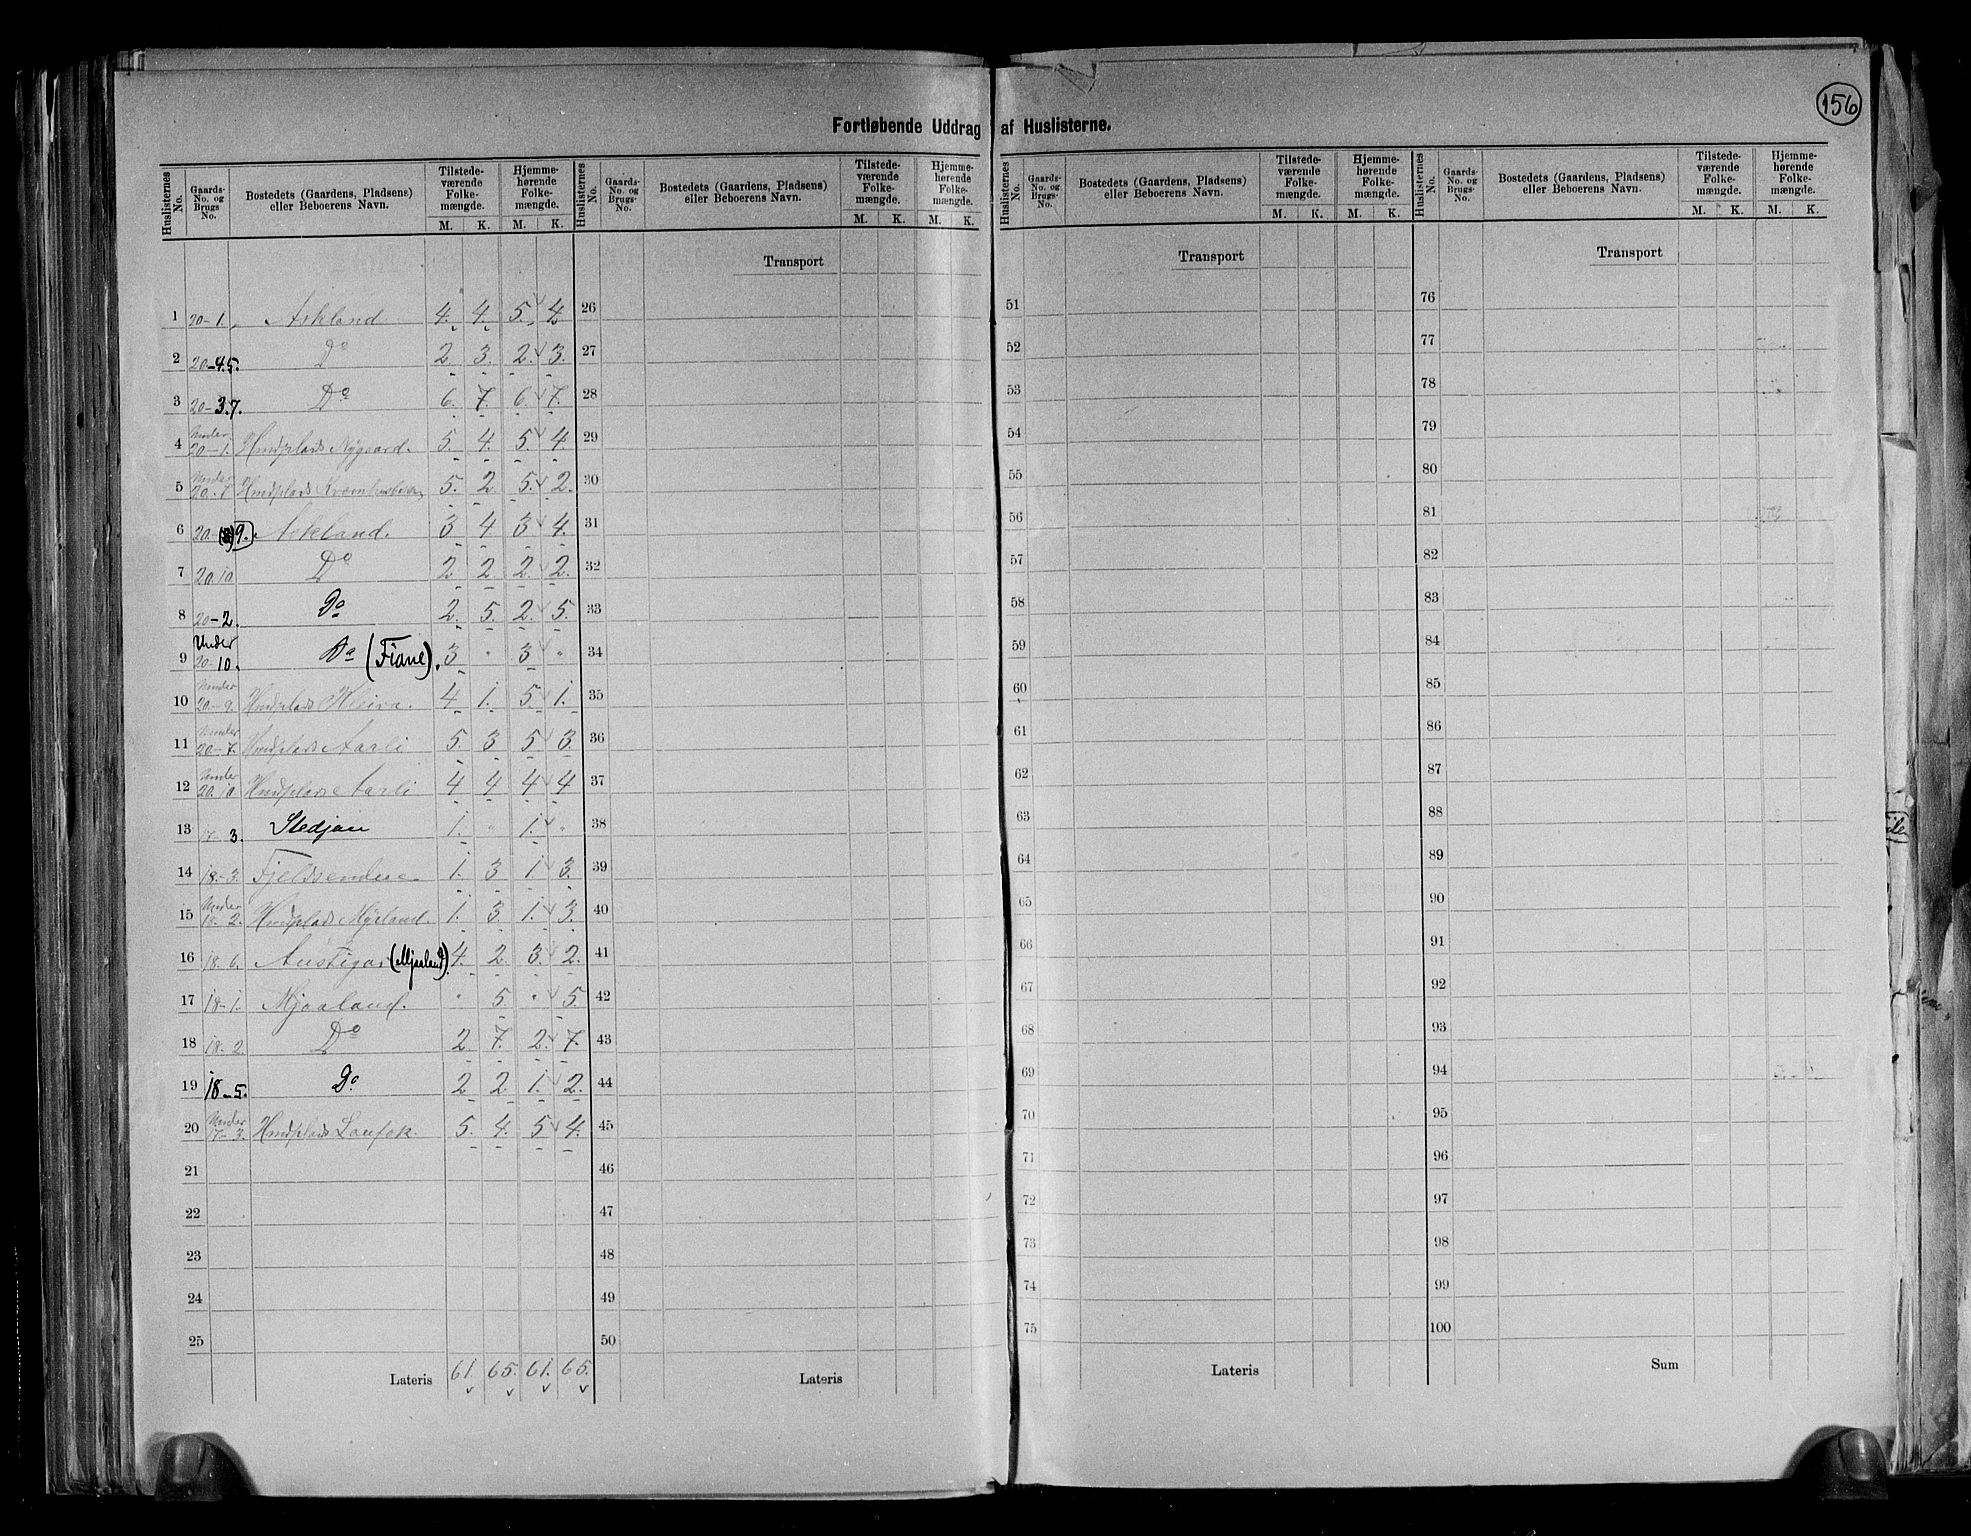 156
Fortløbende Uddrag af Huslisterne.
Huslisternes No. | Gaards-No. og Brugs No. | Bostedets (Gaardens, Pladsens) eller Beboerens Navn. | Tilstedeværende Folkemængde. M. K. | Hjemmehørende Folkemængde. M. K.
Huslisternes No. | Gaards-No. og Brugs-No. | Bostedets (Gaardens, Pladsens) eller Beboerens Navn. | Tilstedeværende Folkemængde. M. K. | Hjemmehørende Folkemængde. M. K.
Huslisternes No. | Gaards-No. og Brugs-No. | Bostedets (Gaardens, Pladsens) eller Beboerens Navn. | Tilstedeværende Folkemængde. M. K. | Hjemmehørende Folkemængde. M. K.
Huslisternes No. | Gaards-No. og Brugs-No. | Bostedets (Gaardens, Pladsens) eller Beboerens Navn. | Tilstedeværende Folkemængde. M. K. | Hjemmehørende Folkemængde. M. K.
Transport Transport Transport
1 20-1. Askland 4. 4. 5. 4 26 51 76
2 20-4.5. Do 2. 3. 2. 3. 27 52 77
3 20-3.7. Do 6. 7. 6. 7. 28 53 78
4 Under 20-1. Husplads Nygaard. 5. 4. 5. 4. 29 54 79
5 Under 20.7 Husplads 5. 2 5. 2. 30 55 80
6 20-(8) 9. Askland. 3 4 3 4. 31 56 81
7 20.10 Do 2 2. 2. 2. 32 57 82
8 20-2. Do 2. 5. 2. 5. 33 58 83
9 Under 20-10. Do (Fiane). 3 " 3 " 34 59 84
10 Under 20-9. Husplads Kleiva. 4 1. 5. 1. 35 60 85
11 Under 20-7. Husplads Aarli 5. 3 5 3. 36 61 86
12 Under 20.10 Husplads Aarli 4 4 4 4 37 62 87
13 17-3. Stedjan 1. " 1. " 38 63 88
14 18-3. 1. 3 1. 3. 39 64 89
15 Under 18-2. Husplads Myrland. 1. 3. 1. 3. 40 65 90
16 18.6. Austigar (Mjaaland). 4. 2. 3. 2. 41 66 91
17 18-1. Mjaaland. " 5. " 5 42 67 92
18 18-2. Do 2. 7. 2. 7. 43 68 93
19 18-5. Do. 2 2. 1. 2. 44 69 94
20 Under 17-3. Husplads Laufok. 5. 4. 5 4. 45 70 95
21 46 71 96
22 47 72 97
23 48 73 98
24 49 74 99
25 50 75 100
Lateris 61. 65. 61. 65. Lateris Lateris Sum